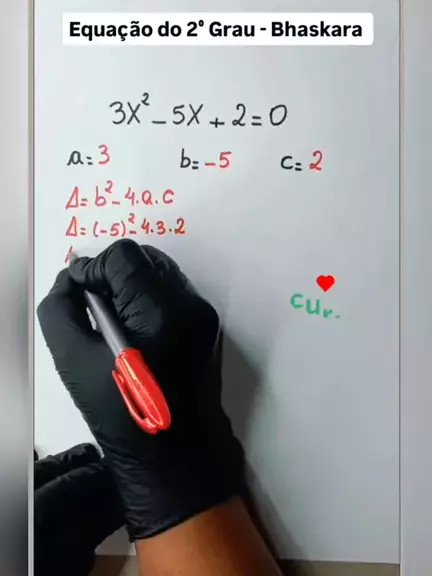 Equação do 2º Grau - Bhaskara
3X² - 5X + 2 = 0
a = 3 b = -5 c = 2
Δ = b² - 4.a.c
Δ = (-5)² - 4.3.2
cur.